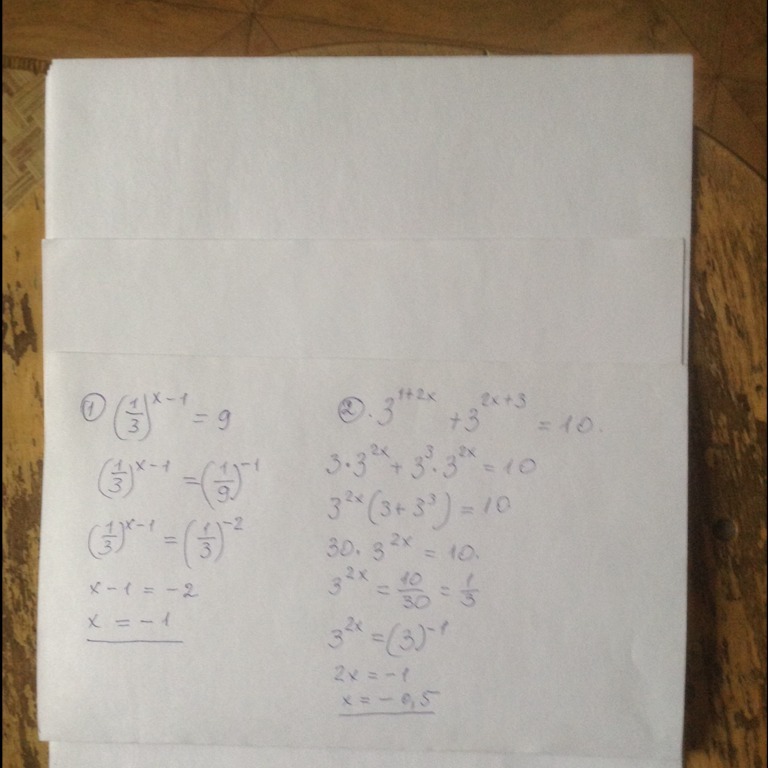 ① (1/3)^(x-1) = 9
(1/3)^(x-1) = (1/9)^(-1)
(1/3)^(x-1) = (1/3)^(-2)
x-1 = -2
x = -1
②. 3^(1+2x) + 3^(2x+3) = 10.
3·3^(2x) + 3^3·3^(2x) = 10
3^(2x)(3+3^3) = 10
30·3^(2x) = 10.
3^(2x) = 10/30 = 1/3
3^(2x) = (3)^(-1)
2x = -1
x = -0,5